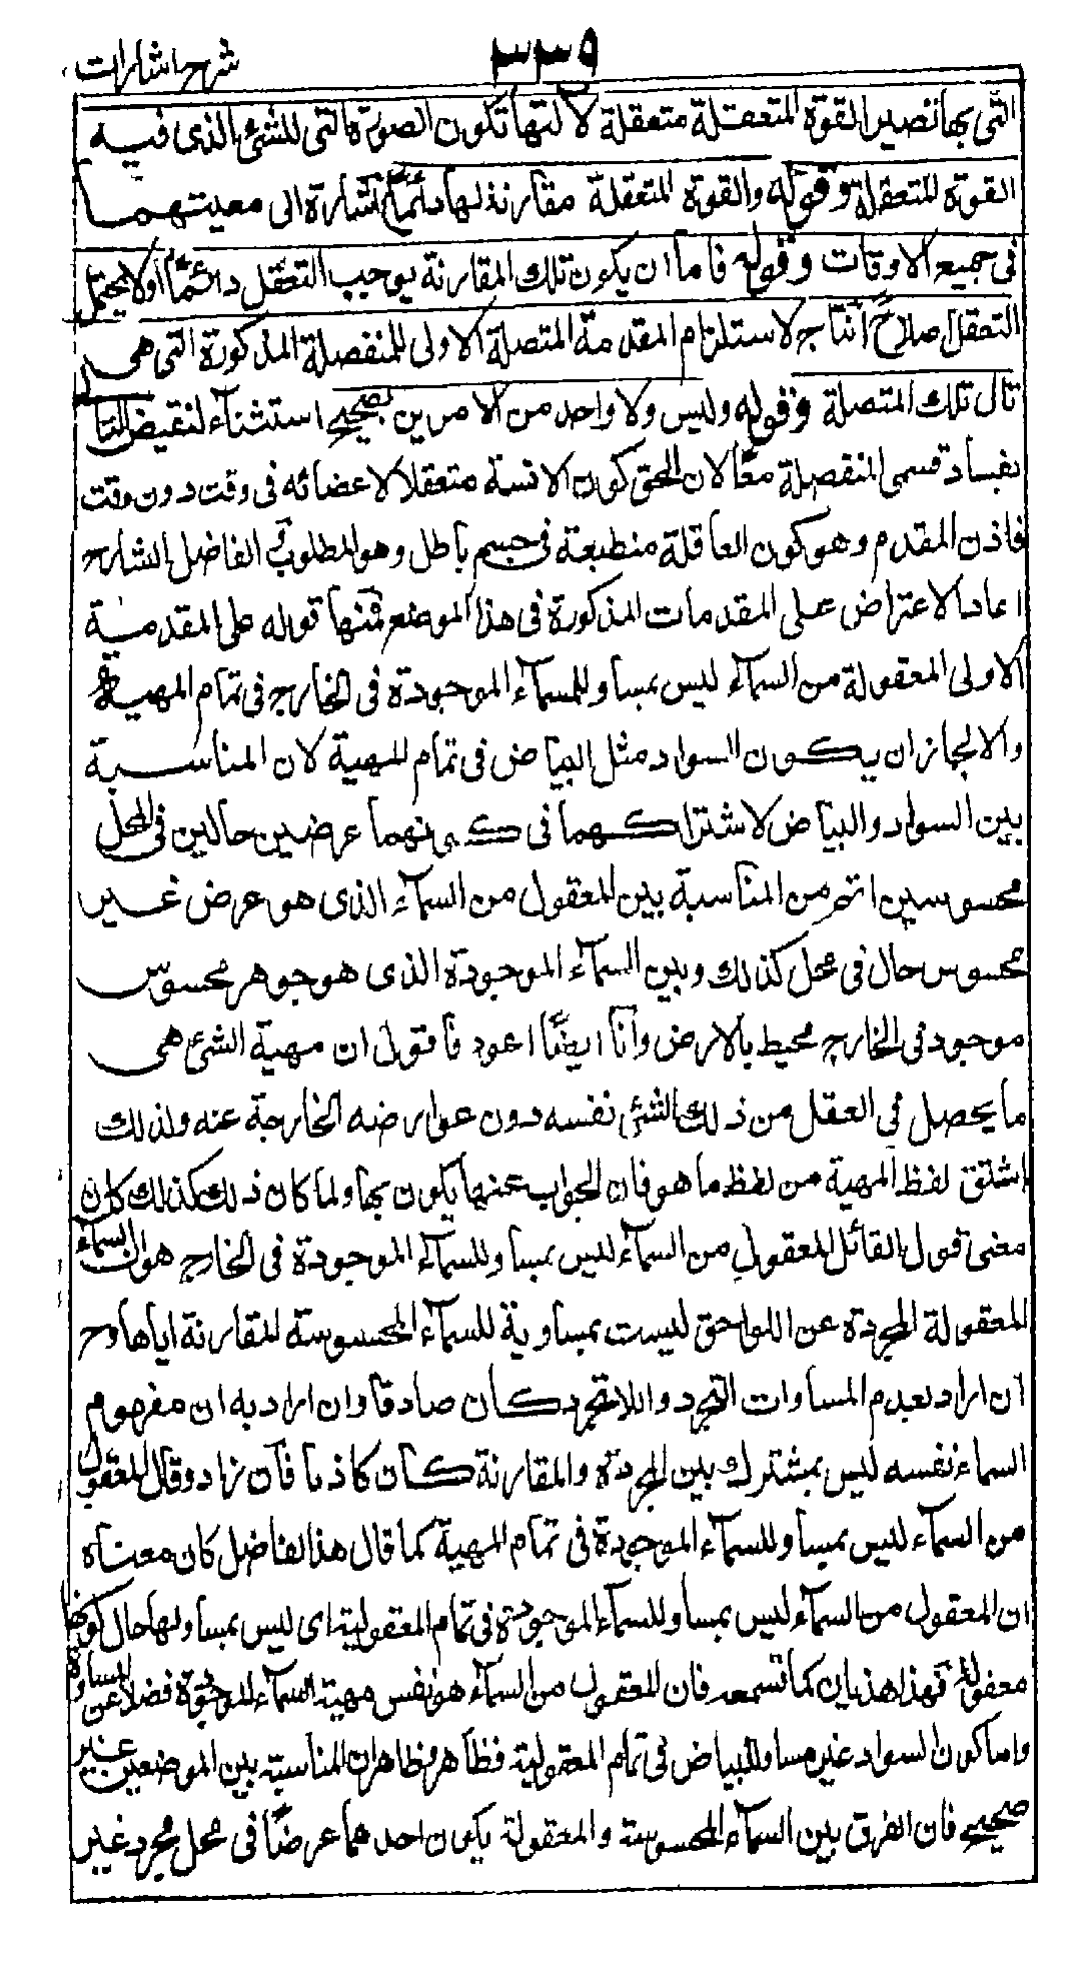 شرح اشارات
٣٣٩
التى بها تصير القوة المتعقلة متعقلة لآلتها تكون الصورة التى للشئ الذى فيه
القوة المتعقلة وقوله والقوة المتعقلة مقارنة لها دائما اشارة الى معيتهما
فى جميع الاوقات وقوله فاما ان يكون تلك المقارنة يوجب التعقل دائما او لا يحتمل
التعقل اصلا انتاج لاستلزام المقدمة المتصلة الاولى للمنفصلة المذكورة التى هى
تالى تلك المتصلة وقوله وليس ولا واحد من الامرين بصحيح استثناء لنقيض التالى
بفساد قسمى المنفصلة معا لان الحق كون الانسان متعقلا لاعضائه فى وقت دون وقت
فاذن المقدم وهو كون العاقلة منطبعة فى جسم باطل وهو المطلوب الفاضل الشارح
اعاد الاعتراض على المقدمات المذكورة فى هذا الموضع فمنها قوله على المقدمة
الاولى المعقولة من السمآء ليس بمساو للسمآء الموجودة فى الخارج فى تمام المهية
والا لجاز ان يكون السواد مثل البياض فى تمام المهية لان المناسبة
بين السواد والبياض لاشتراكهما فى كونهما عرضين حالين فى المحل
محسوسين اتم من المناسبة بين المعقول من السمآء الذى هو عرض غير
محسوس حال فى محل كذلك وبين السمآء الموجودة الذى هو جوهر محسوس
موجود فى الخارج محيط بالارض وانا ايضا اعود فاقول ان مهية الشئ هى
ما يحصل فى العقل من ذلك الشئ نفسه دون عوارضه الخارجة عنه ولذلك
اشتق لفظ المهية من لفظ ما هو فان الجواب عنها يكون بها ولما كان ذلك كذلك كان
معنى قول القائل المعقول من السمآء ليس بمساو للسمآء الموجودة فى الخارج هو ان السمآء
المعقولة المجردة عن اللواحق ليست بمساوية للسمآء المحسوسة المقارنة اياها وح
ان اراد بعدم المساوات التجرد واللاتجرد كان صادقا وان اراد به ان مفهوم
السماء نفسه ليس بمشترك بين المجردة والمقارنة كان كاذبا فان زاد وقال المعقول
من السمآء ليس بمساو للسمآء الموجودة فى تمام المهية كما قال هذا الفاضل كان معناه
ان المعقول من السمآء ليس بمساو للسمآء الموجودة فى تمام المعقولية اى ليس بمساو لها حال كونها
معقولة فهذا هذيان كما تسمعه فان المعقول من السمآء هو نفس مهية السمآء الموجودة فضلا عن المساواة
واما كون السواد غير مساو للبياض فى تمام المعقولية فظاهر فظاهر ان المناسبة بين الموضعين غير
صحيح فان الفرق بين السمآء المحسوسة والمعقولة يكون احدهما عرضا فى محل مجرد غير